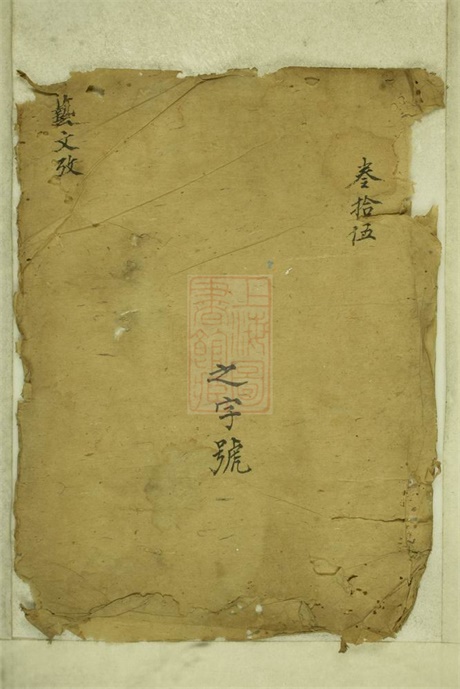 叁拾伍
之字號
藝文攷